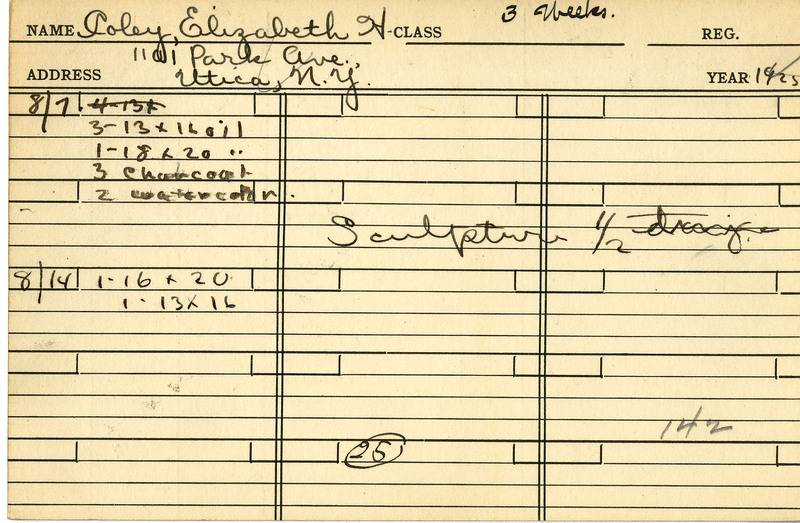 NAME Coley, Elizabeth H- CLASS 3 Weeks. REG.
1101 Park Ave.,
ADDRESS Utica, N.Y. YEAR 1925
8/7 4-13x
3-13 x 16 oil
1-18 x 20 "
3 charcoal
2 watercolor.
Sculpture 1/2
8/14 1-16 x 20
1-13 x 16
142
25